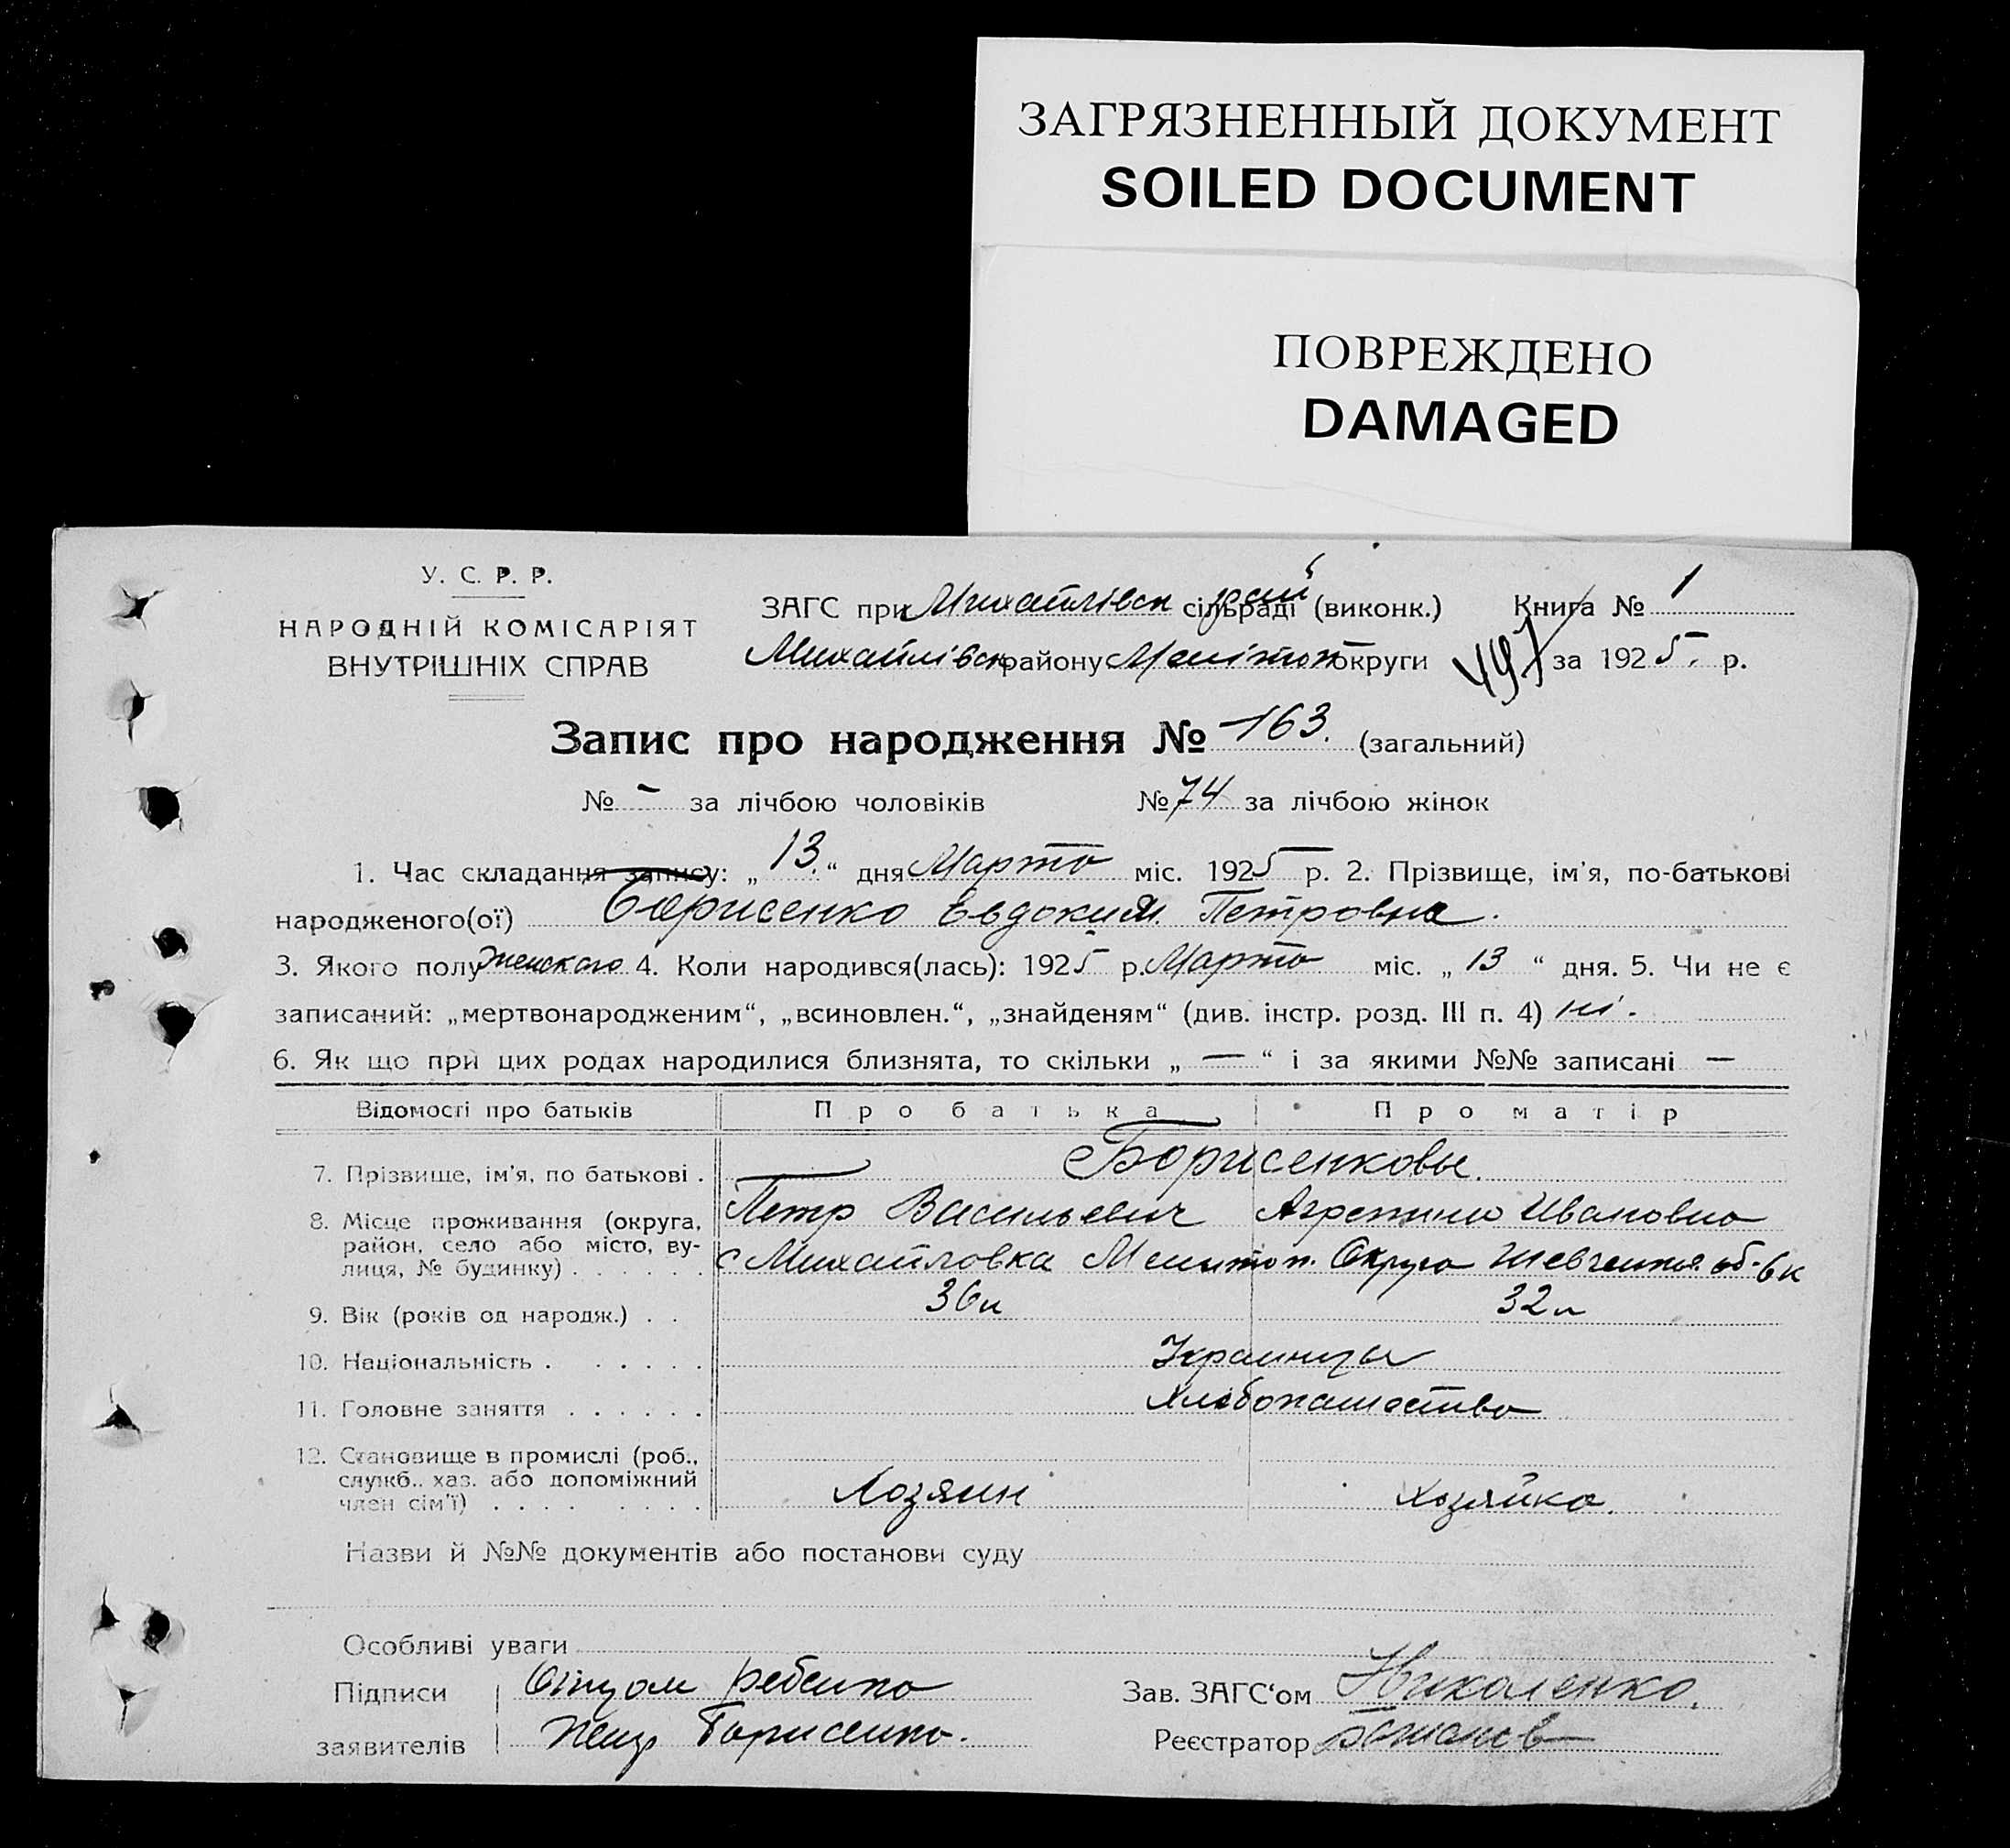 ЗАГРЯЗНЕННЫЙ ДОКУМЕНТ
SOILED DOCUMENT
ПОВРЕЖДЕНО
DAMAGED
У. С. Р. Р.
НАРОДНІЙ КОМІСАРІЯТ
ВНУТРІШНІХ СПРАВ
ЗАГС при Михайлівск рай сільраді (виконк.) Книга № 1
Михайлівск району Меліտоп округи 497 за 1925 р.
Запис про народження № 163. (загальний)
№ - за лічбою чоловіків № 74 за лічбою жінок
1. Час складання запису: „13.“ дня Марта міс. 1925 р. 2. Прізвище, ім'я, по-батькові
народженого(ої) Борисенко Евдоким. Петровна.
3. Якого полу Женского 4. Коли народився(лась): 1925 р. Марта міс. „13“ дня. 5. Чи не є
записаний: „мертвонародженим“, „всиновлен.“, „знайденям“ (див. інстр. розд. III п. 4) ні.
6. Як що при цих родах народилися близнята, то скільки „—“ і за якими №№ записані —
Відомості про батьків Про батька Про матір
7. Прізвище, ім'я, по батькові . Борисенковы.
8. Місце проживання (округа, Петр Васильевич Агрепина Ивановна
район, село або місто, ву-
лиця, № будинку) . . . . . . с Михайловка Мелитоп. Округа Шевченка об-6к
9. Вік (років од народж.) . . 36 л 32 л
10. Національність . . . . . . Украинцы
11. Головне заняття . . . . . . Хлебопашество
12. Становище в промислі (роб.,
служб., хаз. або допоміжний
член сім'ї) . . . . . . . . Хозяин Хозяйка.
Назви й №№ документів або постанови суду
Особливі уваги
Підписи Отцом ребенка Зав. ЗАГС‘ом Николенко.
заявителів Петр Борисенко. Реєстратор